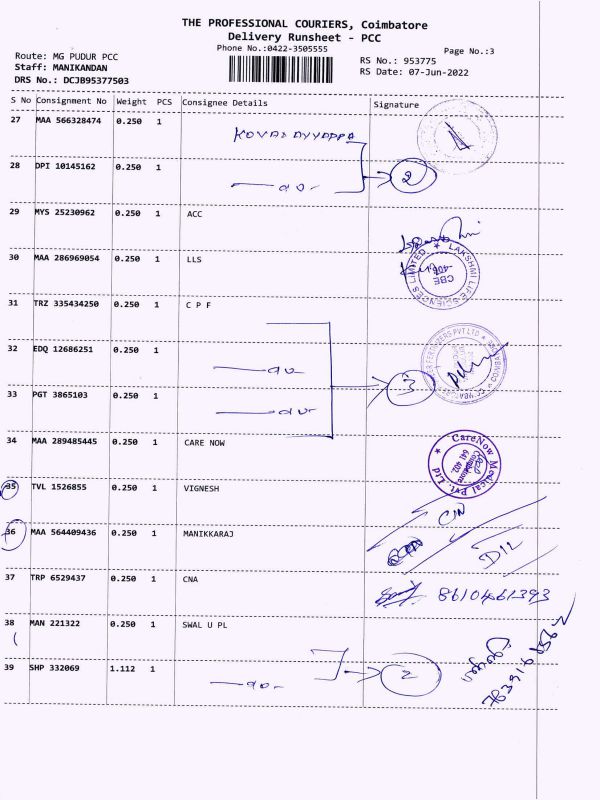 THE PROFESSIONAL COURIERS, Coimbatore
Delivery Runsheet - PCC
Phone No.:0422-3505555
Page No.:3
Route: MG PUDUR PCC
Staff: MANIKANDAN
DRS No.: DCJB95377503
RS No.: 953775
RS Date: 07-Jun-2022
S No Consignment No Weight PCS Consignee Details Signature
27 MAA 566328474 0.250 1 KOVAI AYYAPPA
28 DPI 10145162 0.250 1 —do— 2
29 MYS 25230962 0.250 1 ACC
30 MAA 286969054 0.250 1 LLS
LAKSHMI LIFE SCIENCES LIMITED
CBE
31 TRZ 335434250 0.250 1 C P F
32 EDQ 12686251 0.250 1 —do—
33 PGT 3865103 0.250 1 —do— 3
34 MAA 289485445 0.250 1 CARE NOW
CareNow Medical Pvt. Ltd
Coimbatore
641 402.
35 TVL 1526855 0.250 1 VIGNESH
36 MAA 564409436 0.250 1 MANIKKARAJ
D/L
37 TRP 6529437 0.250 1 CNA 8610461393
38 MAN 221322 0.250 1 SWAL U PL
39 SHP 332069 1.112 1 —do— 2